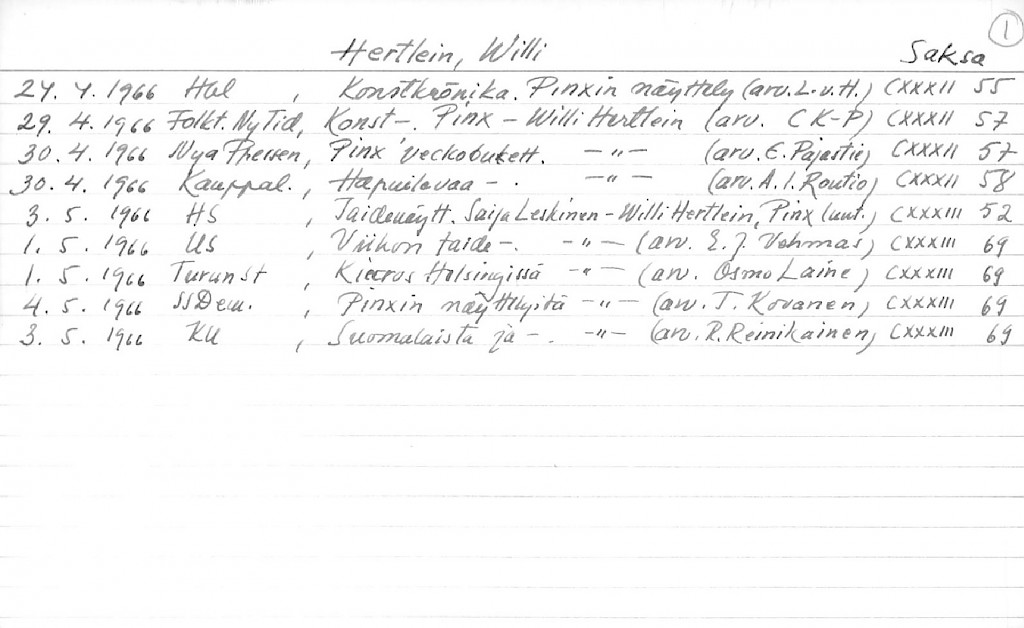 1
Hertlein, Willi Saksa
27. 4. 1966 Hbl , Konstkrönika. Pinxin näyttely (arv. L.v.H.) CXXXII 55
29. 4. 1966 Folkt. Ny Tid, Konst-. Pinx - Willi Hertlein (arv. C K-P) CXXXII 57
30. 4. 1966 Nya Pressen, Pinx' veckobukett. -"- (arv. E. Pajastie) CXXXII 57
30. 4. 1966 Kauppal. , Hapuilevaa - . -"- (arv. A. I. Routio) CXXXII 58
3. 5. 1966 HS , Taidenäytt. Saija Leskinen - Willi Hertlein, Pinx (uut.) CXXXIII 52
1. 5. 1966 US , Viikon taide -. -"- (arv. E. J. Vehmas) CXXXIII 69
1. 5. 1966 Turun St , Kierros Helsingissä -"- (arv. Osmo Laine) CXXXIII 69
4. 5. 1966 SSDem. , Pinxin näyttelyitä -"- (arv. T. Kovanen) CXXXIII 69
3. 5. 1966 KU , Suomalaista ja -. -"- (arv. R. Reinikainen) CXXXIII 69